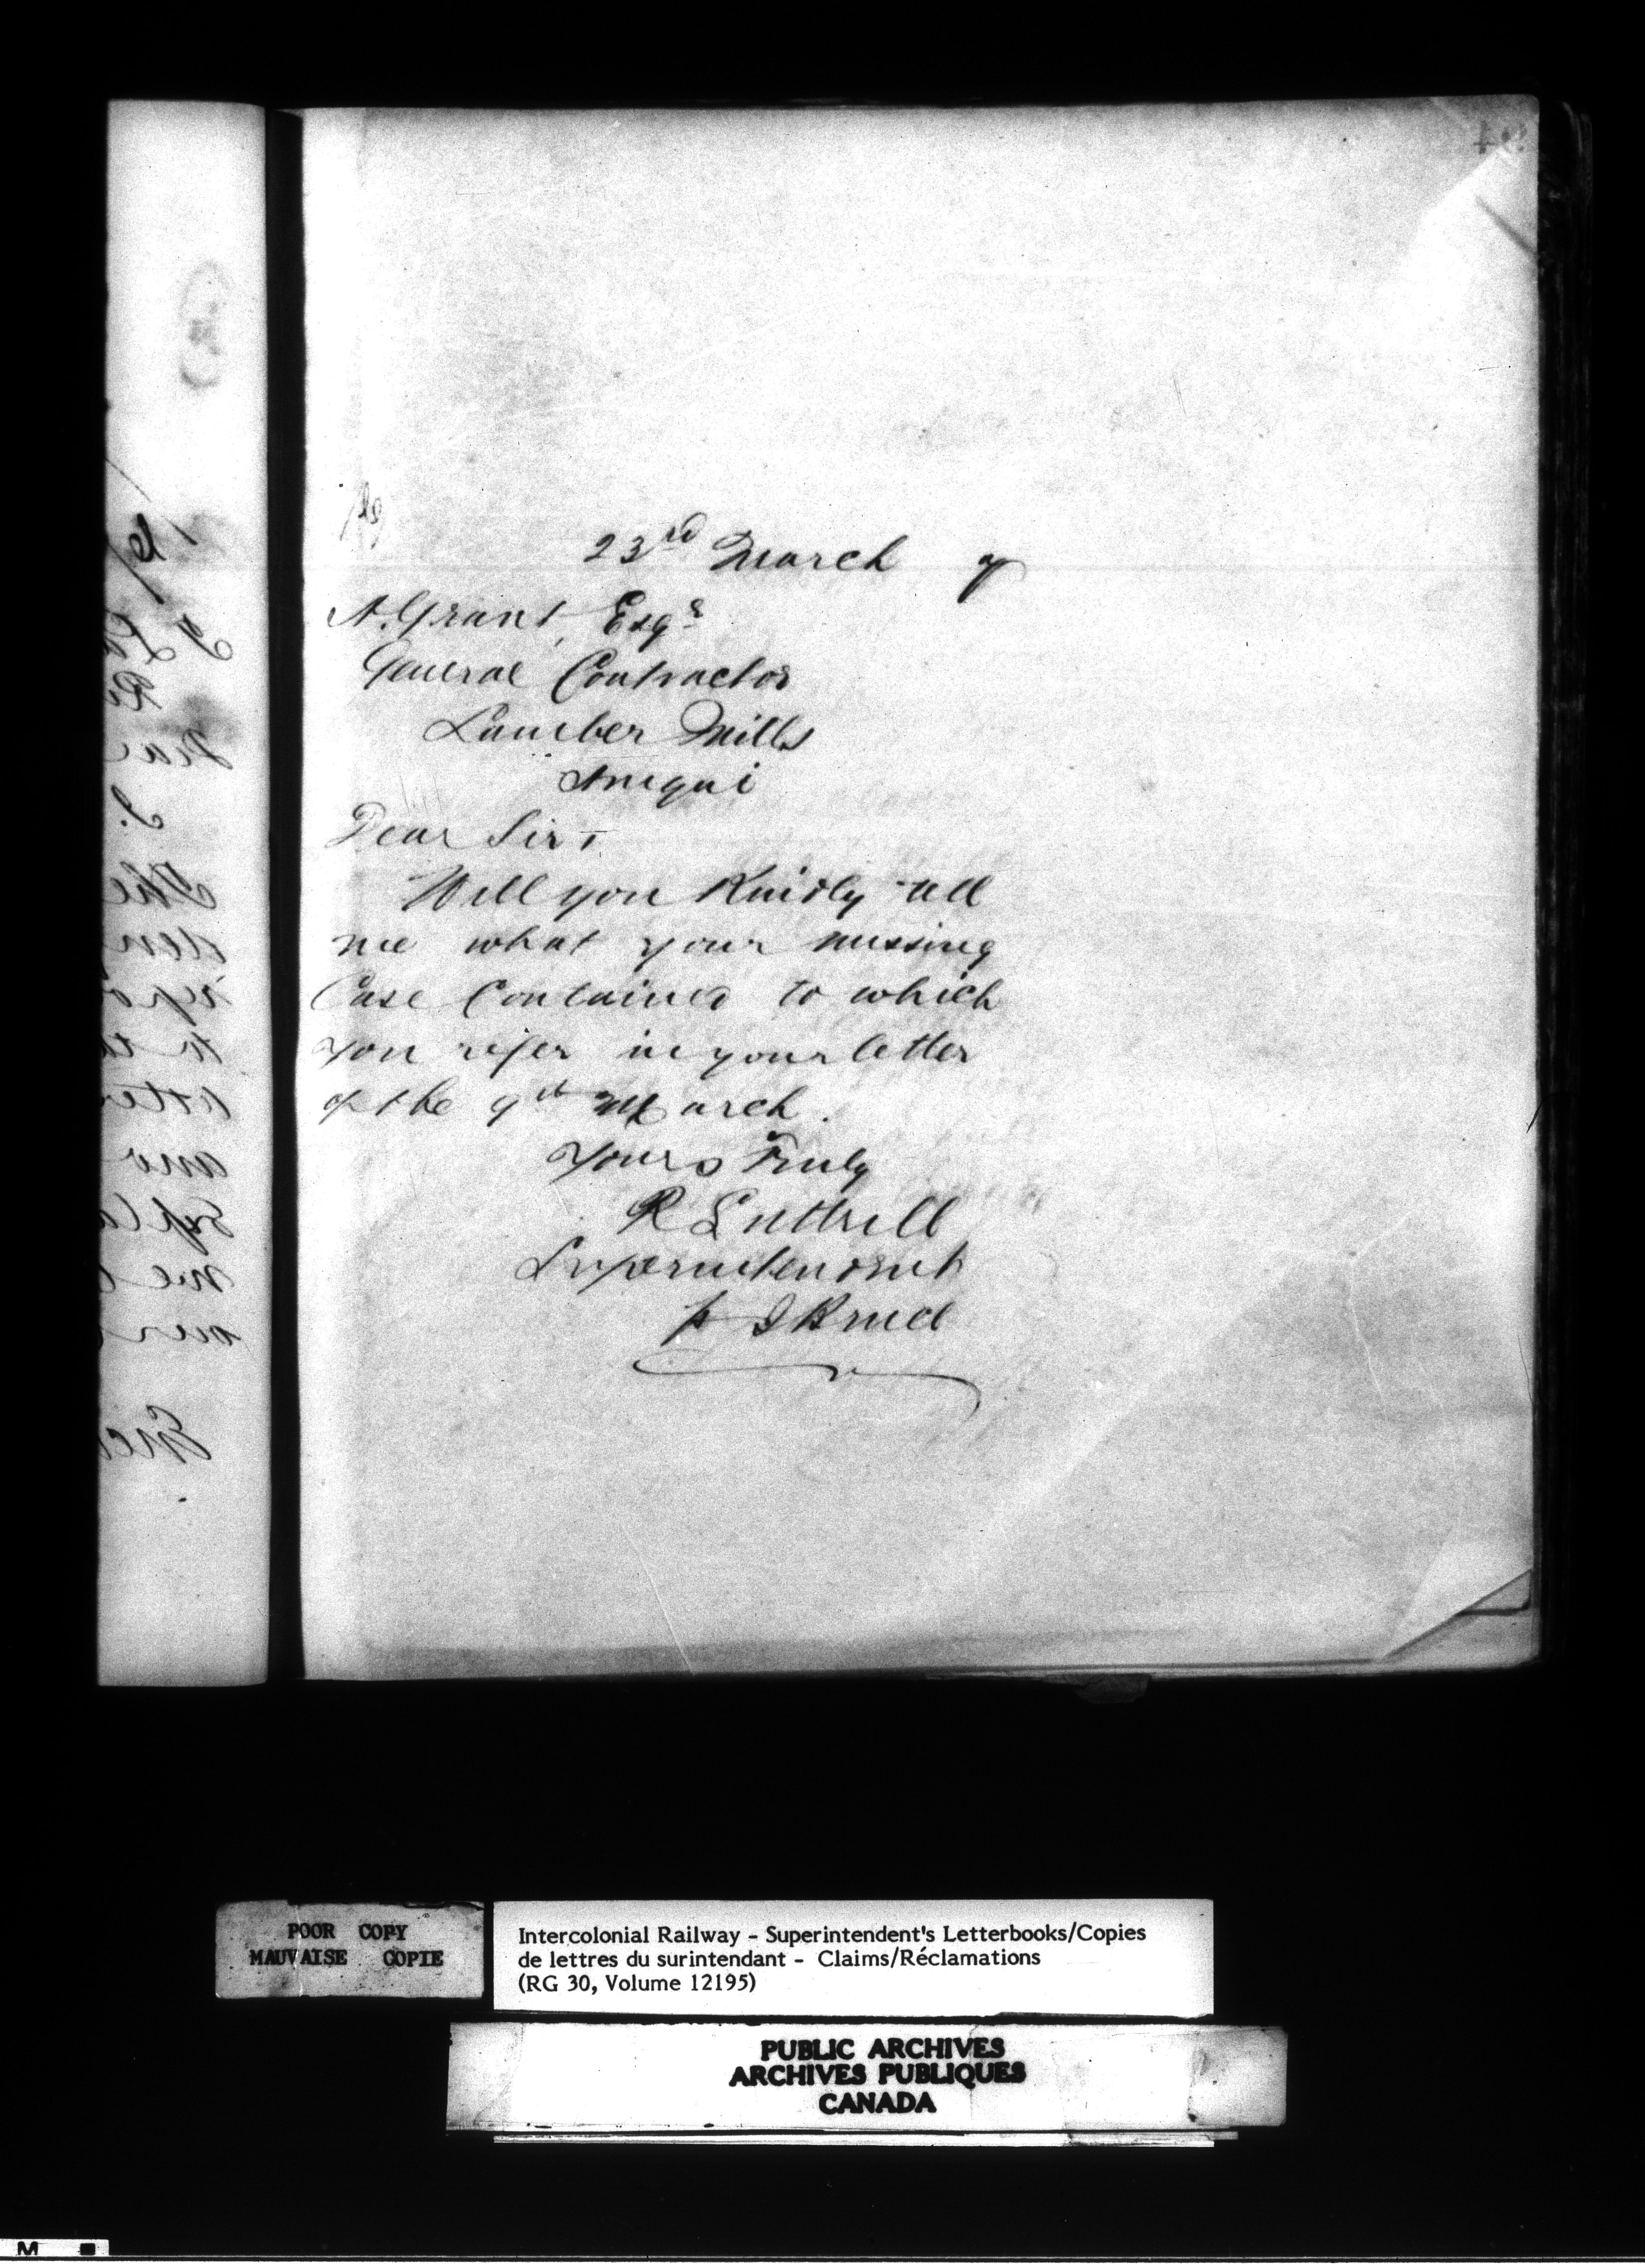 23rd March
A. Grant, Esqr
General Contractor
Lumber Mills
Amqui
Dear Sir,
Will you Kindly tell
me what your missing
Case Contained to which
you refer in your letter
of the 9th March.
Yours Truly
R Luttrell
Superintendent
POOR COPY
MAUVAISE COPIE
Intercolonial Railway - Superintendent's Letterbooks/Copies
de lettres du surintendant - Claims/Réclamations
(RG 30, Volume 12195)
PUBLIC ARCHIVES
ARCHIVES PUBLIQUES
CANADA
M